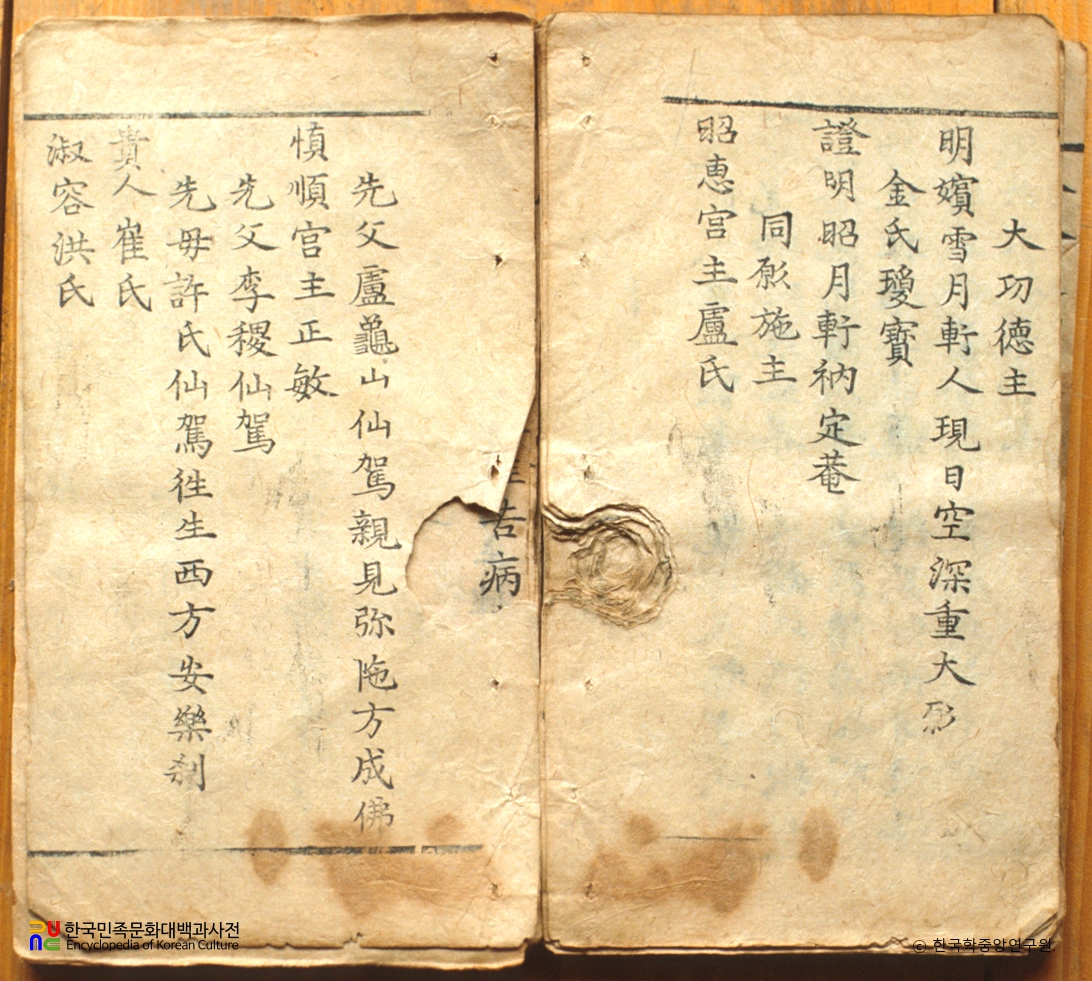 大功德主
明嬪雪月軒人現日空深重大
金氏瓊寳
證明昭月軒衲定菴
同 施主
昭惠宮主盧氏
吉病
先父盧龜山仙駕親見弥陁方成佛
慎順宮主正敏
先父李稷仙駕
先母許氏仙駕徃生西方安樂刹
貴人崔氏
淑容洪氏
한국민족문화대백과사전
Encyclopedia of Korean Culture
© 한국학중앙연구원